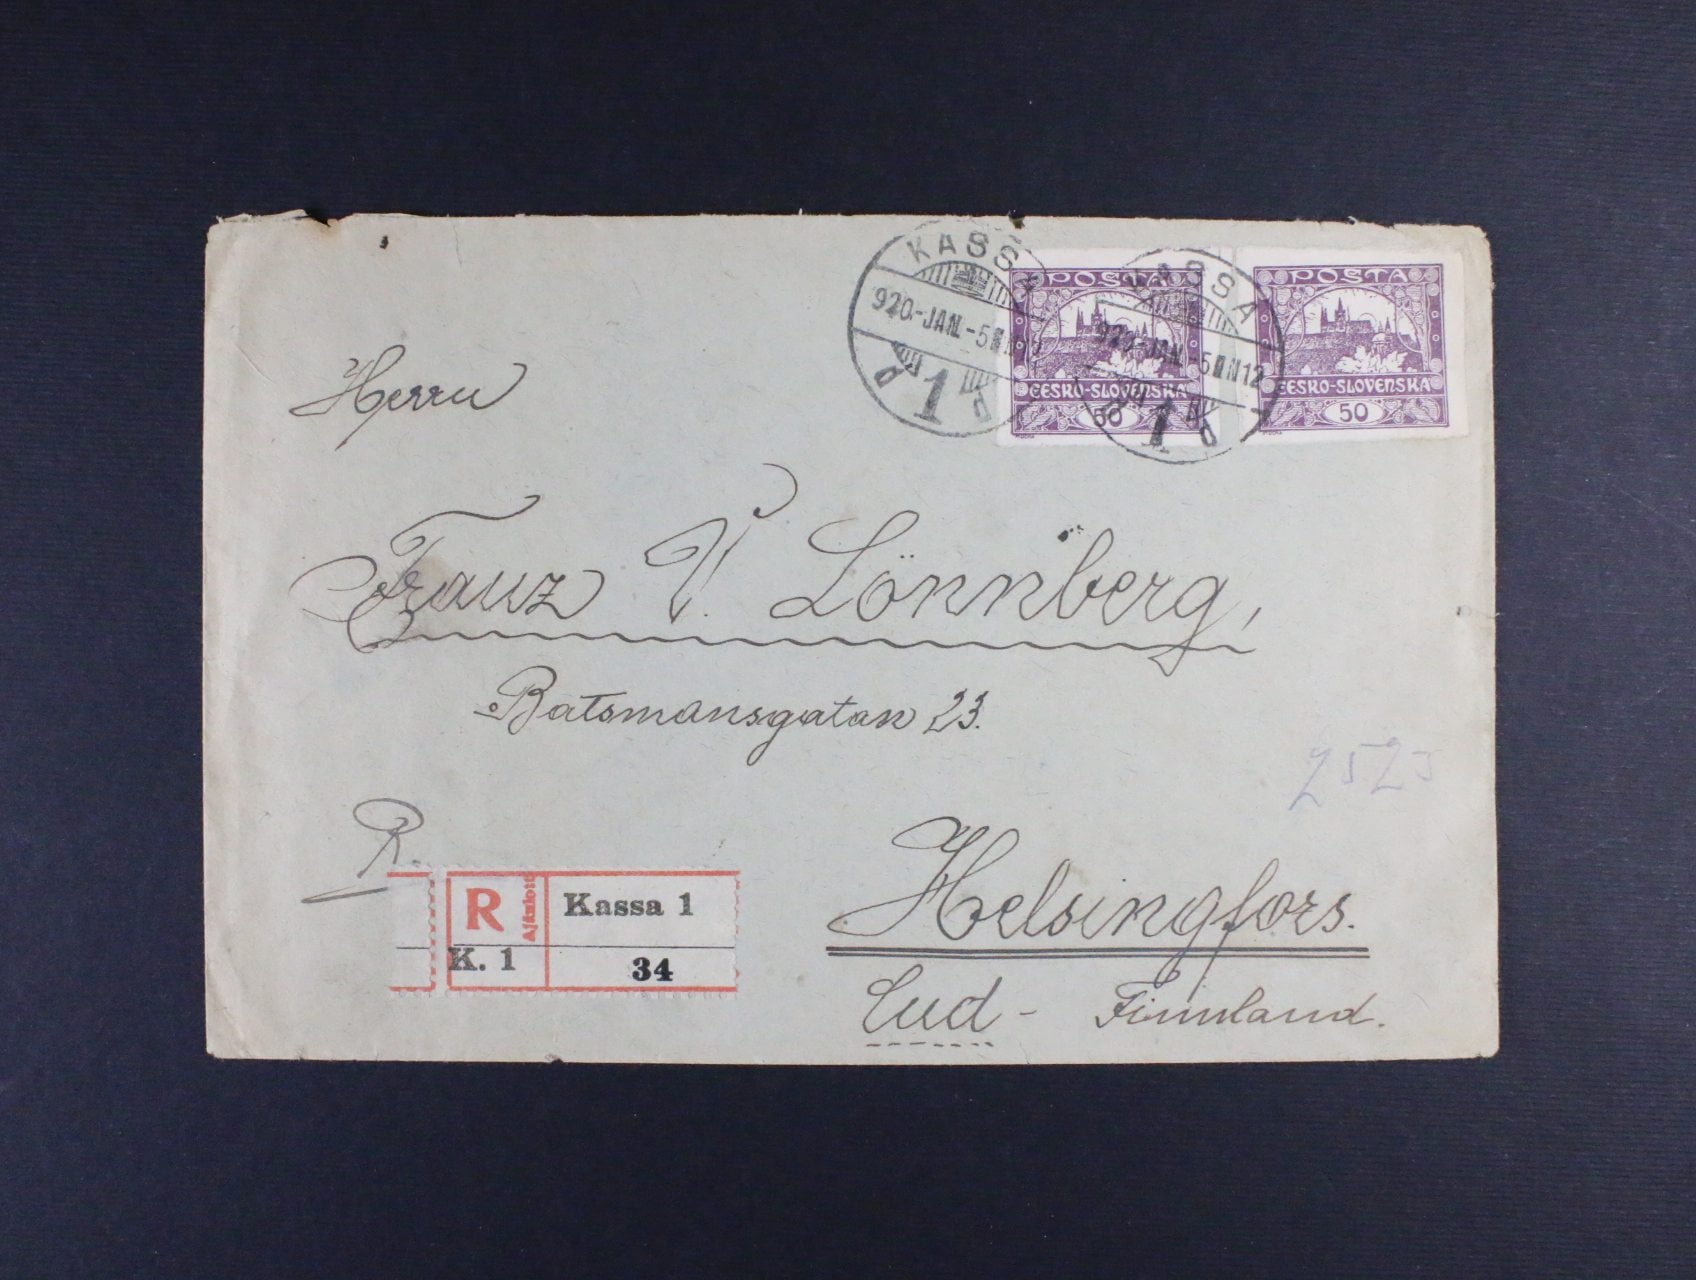 KASSA
920.-JAN.-5
1
d d
KASSA
920.-JAN.-5 N12
1 d
POSTA
ČESKO-SLOVENSKÁ
50
POSTA
ČESKO-SLOVENSKÁ
50
Herrn
Franz V. Lönnberg,
Batsmansgatan 23.
2523
R.
R Ajánlott Kassa 1
K. 1 34
Helsingfors.
Finnland.